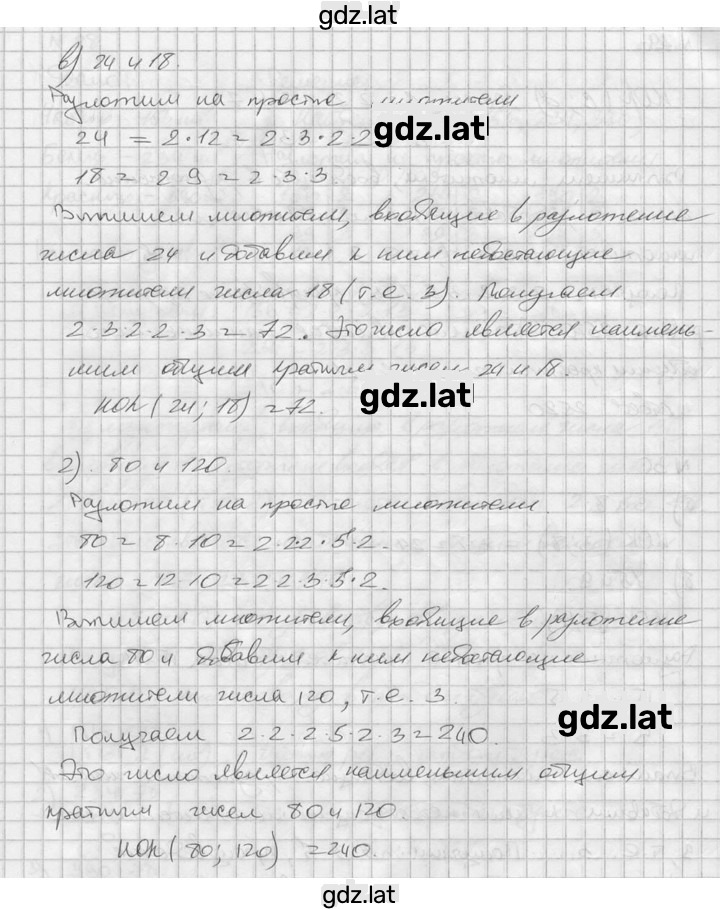 gdz.lat
в) 24 и 18.
Разложим на простые множители
24 = 2·12 = 2·3·2·2
gdz.lat
18 = 2 9 = 2·3·3.
Выпишем множители, входящие в разложение
числа 24 и добавим к ним недостающие
множители числа 18 (т.е. 3). Получаем
2·3·2·2·3 = 72. Это число является наимень-
шим общим кратным чисел 24 и 18.
gdz.lat
НОК (24; 18) = 72.
г). 80 и 120.
Разложим на простые множители.
80 = 8·10 = 2·2·2·5·2.
120 = 12·10 = 2·2·3·5·2.
Выпишем множители, входящие в разложение
числа 80 и добавим к ним недостающие
множители числа 120, т.е. 3.
gdz.lat
Получаем 2·2·2·5·2·3 = 240.
Это число является наименьшим общим
кратным чисел 80 и 120.
НОК (80; 120) = 240.
gdz.lat